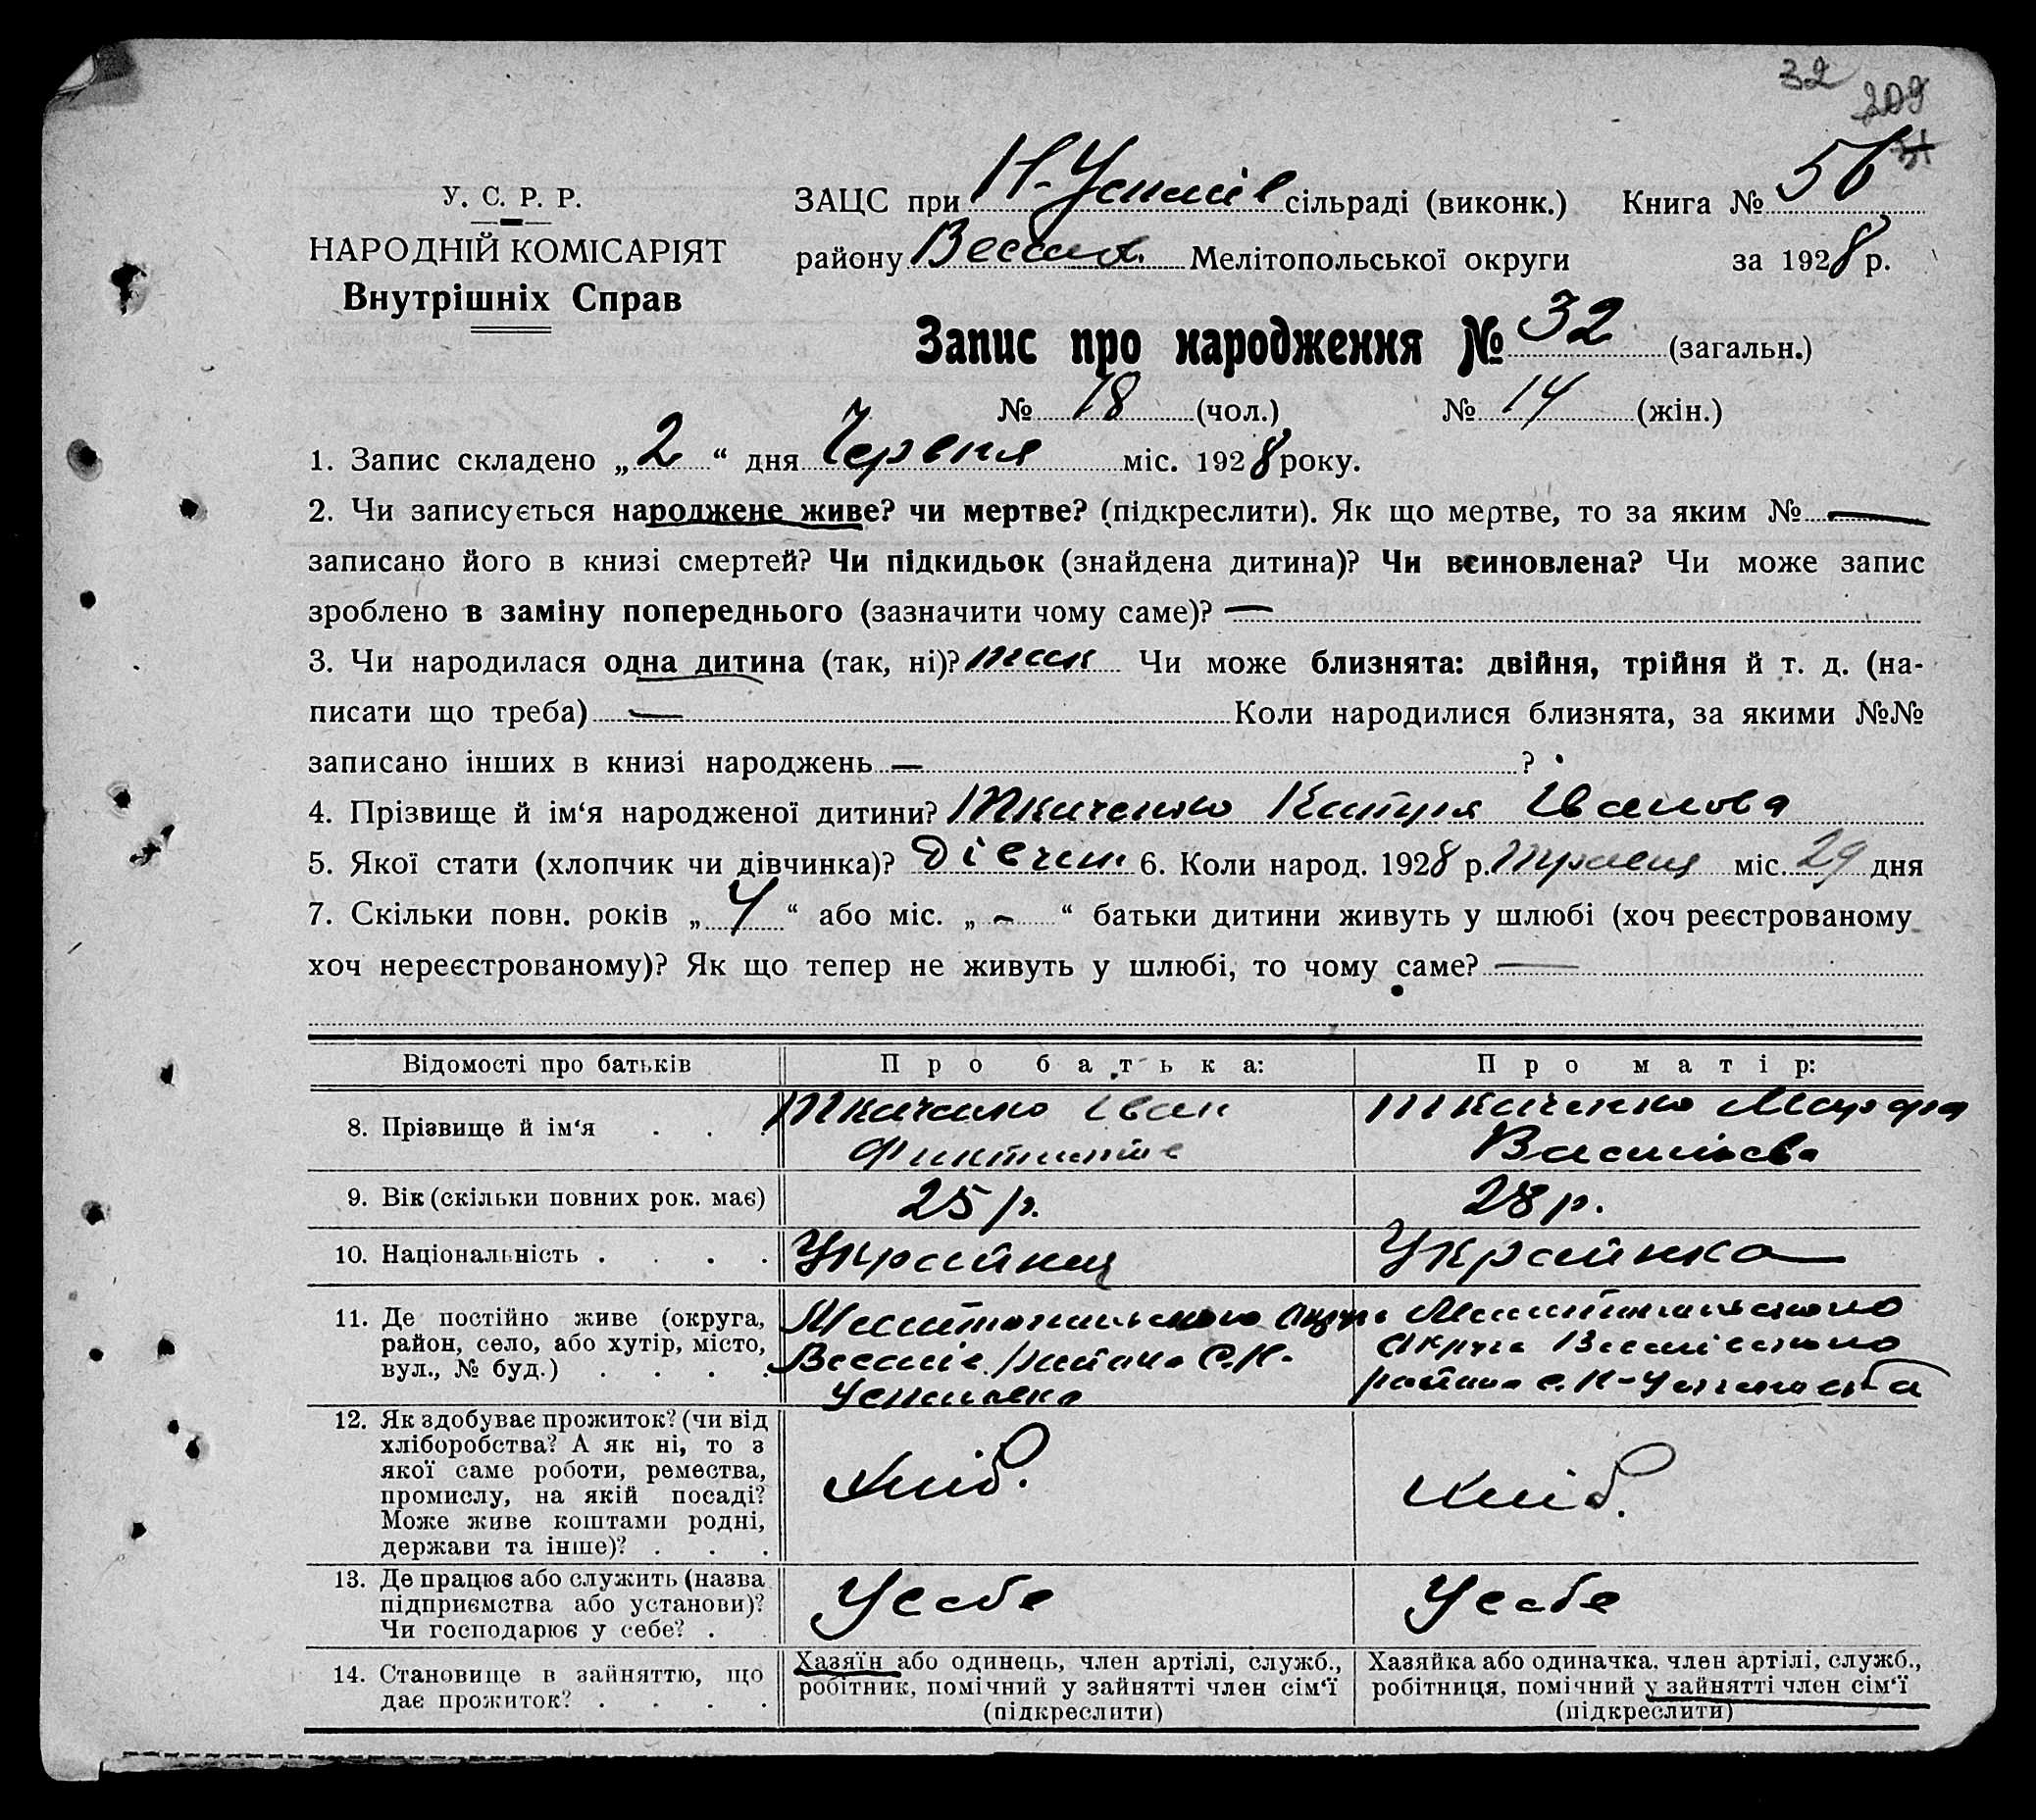 32
209
У. С. Р. Р.
НАРОДНІЙ КОМІСАРІЯТ
Внутрішніх Справ
ЗАЦС при Н-Успенів сільраді (виконк.) Книга № 56
району Весел. Мелітопольської округи за 1928 р.
Запис про народження № 32 (загальн.)
№ 18 (чол.) № 14 (жін.)
1. Запис складено „ 2 “ дня Червня міс. 1928 року.
2. Чи записується народжене живе? чи мертве? (підкреслити). Як що мертве, то за яким № —
записано його в книзі смертей? Чи підкидьок (знайдена дитина)? Чи всиновлена? Чи може запис
зроблено в заміну попереднього (зазначити чому саме)? —
3. Чи народилася одна дитина (так, ні)? так Чи може близнята: двійня, трійня й т. д. (на-
писати що треба) — Коли народилися близнята, за якими №№
записано інших в книзі народжень — ?
4. Прізвище й ім‘я народженої дитини? Ткаченко Катря Іванова
5. Якої стати (хлопчик чи дівчинка)? Дівчин. 6. Коли народ. 1928 р. Травня міс. 29 дня
7. Скільки повн. років „ 4 “ або міс. „ - “ батьки дитини живуть у шлюбі (хоч реєстрованому
хоч нереєстрованому)? Як що тепер не живуть у шлюбі, то чому саме? —
Відомості про батьків Про батька: Про матір:
8. Прізвище й ім‘я . . . Ткаченко Іван Ткаченко Марфа
Васильова
9. Вік (скільки повних рок. має) 25 р. 28 р.
10. Національність . . . . Украйнец Украйнка
11. Де постійно живе (округа, район, село, або хутір, місто, вул., № буд.) . . . .
Мелітопольського Округу Веселів. району С. Н-Успеновка
Мелітопольського Округу Веселівського району с. Н-Успеновка
12. Як здобуває прожиток? (чи від хліборобства? А як ні, то з якої саме роботи, ремества, промислу, на якій посаді? Може живе коштами родні, держави та інше)? . . .
Хліб. Хліб.
13. Де працює або служить (назва підприємства або установи)? Чи господарює у себе? .
Усебе Усебе
14. Становище в зайняттю, що дає прожиток? . . . .
Хазяїн або одинець, член артілі, служб., робітник, помічний у зайнятті член сім‘ї (підкреслити)
Хазяйка або одиначка, член артілі, служб., робітниця, помічний у зайнятті член сім‘ї (підкреслити)